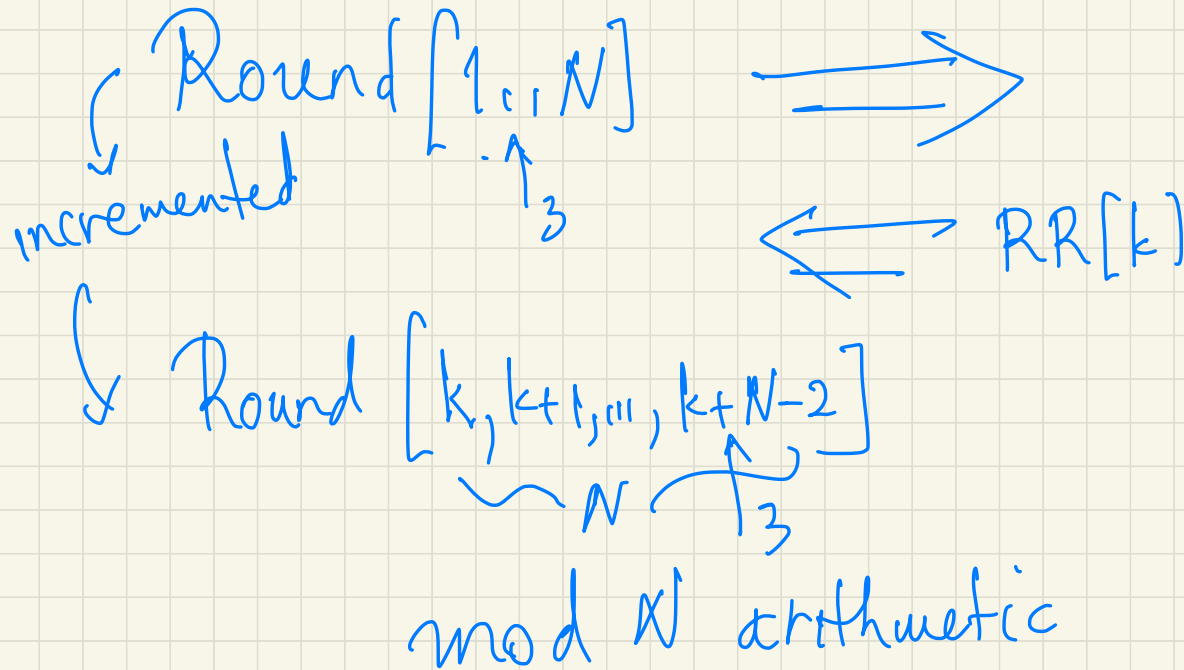 Round [1,..,N] ⟹
3
incremented
⟸ RR[k]
Round [k, k+1, ..., k+N-2]
N
3
mod N arithmetic